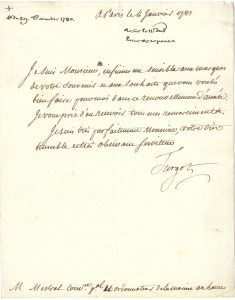 à Paris le 4 Janvier 1781
Je suis Monsieur, infiniment sensible aux marques
de votre souvenir et aux souhaits que vous voulés
bien faire pour moi dans ce renouvellement d'année.
Je vous prie d'en recevoir tous mes remerciements.
Je suis très parfaitement Monsieur, votre très
humble et très obeissant serviteur
Turgot
M. Mistral ordonnateur de la marine au havre